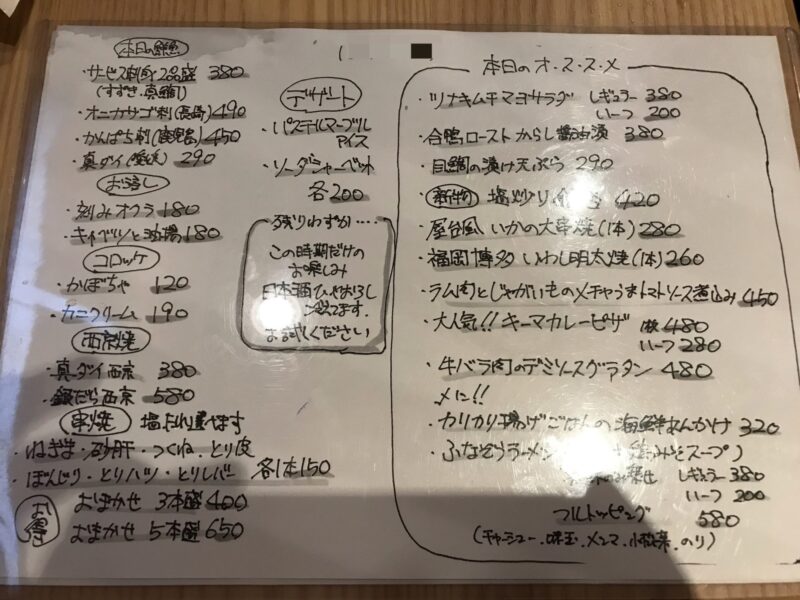 本日の鮮魚
・サービス刺身2品盛 380
(すずき・真鯛)
・オニカサゴ刺(長崎) 490
・かんぱち刺(鹿児島) 450
・真ダイ(愛媛) 290
お浸し
・刻みオクラ 180
・キャベツと油揚 180
コロッケ
・かぼちゃ 120
・カニクリーム 190
西京焼
・真ダイ西京 380
・銀だら西京 580
串焼 塩たれ選べます
・ねぎま・砂肝・つくね・とり皮
・ぼんじり・とりハツ・とりレバー 各1本150
お得
おまかせ 3本盛 400
おまかせ 5本盛 650
デザート
・パステルマーブルアイス
・ソーダシャーベット
各200
残りわずか…
この時期だけの
お楽しみ
日本酒ひやおろし
ございます
お試しください
本日のオ・ス・ス・メ
・ツナキムチマヨサラダ レギュラー 380
ハーフ 200
・合鴨ローストからし醤油漬 380
・目鯛の漬け天ぷら 290
・新物 塩炒り 420
・屋台風 いかの大串焼(1本) 280
・福岡博多 いわし明太焼(1本) 260
・ラム肉とじゃがいものメチャうまトマトソース煮込み 450
・大人気!! キーマカレーピザ 1枚 480
ハーフ 280
・牛バラ肉のデミソースグラタン 480
〆に!!
・カリカリ揚げごはんの海鮮あんかけ 320
・ふなぞうラーメン みそスープ)
レギュラー 380
ハーフ 200
フルトッピング 580
(チャーシュー、味玉、メンマ、小松菜、のり)